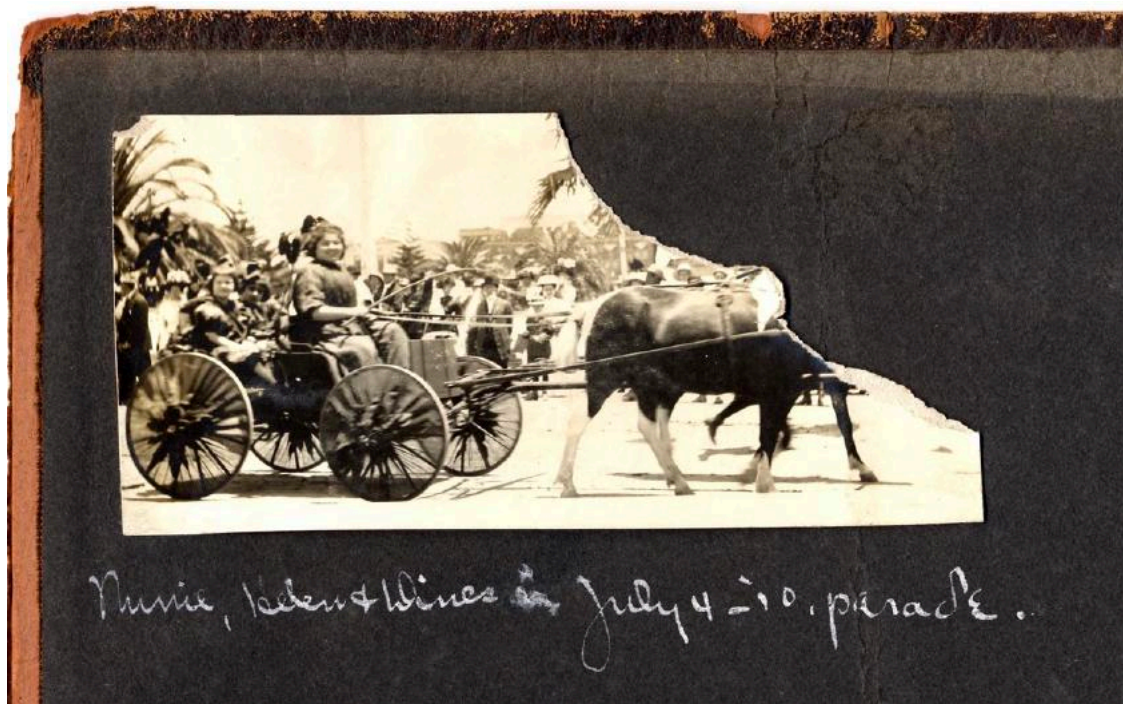 Minnie, Helen & Wines in July 4 - '10. parade.